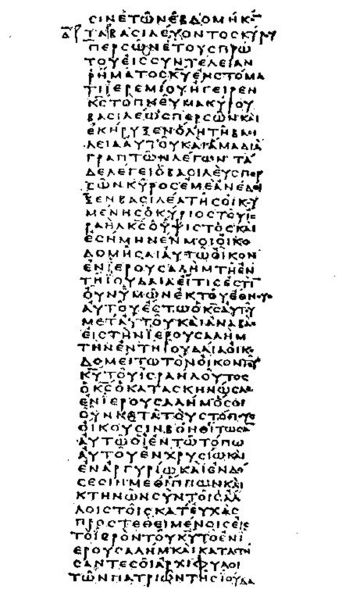 ϹΙΝΕΤΩΝΕΒΔΟΜΗΚΟ̅
ΤΑΒΑϹΙΛΕΥΟΝΤΟϹΚΥΡΟΥ
ΠΕΡϹΩΝΕΤΟΥϹΠΡΩ
ΤΟΥΕΙϹϹΥΝΤΕΛΕΙΑΝ
ΡΗΜΑΤΟϹΚ̅Υ̅ΕΝϹΤΟΜΑ
ΤΙΙΕΡΕΜΙΟΥΗΓΕΙΡΕΝ
Κ̅Ϲ̅ΤΟΠΝΕΥΜΑΚΥΡΟΥ
ΒΑϹΙΛΕΩϹΠΕΡϹΩΝΚΑΙ
ΕΚΗΡΥΞΕΝΟΛΗΤΗΒΑϹΙ
ΛΕΙΑΑΥΤΟΥΚΑΙΑΜΑΔΙΑ
ΓΡΑΠΤΩΝΛΕΓΩΝΤΑ
ΔΕΛΕΓΕΙΟΒΑϹΙΛΕΥϹΠΕΡ
ϹΩΝΚΥΡΟϹΕΜΕΑΝΕΔΕΙ
ΞΕΝΒΑϹΙΛΕΑΤΗϹΟΙΚΟΥ
ΜΕΝΗϹΟΚΥΡΙΟϹΤΟΥΙϹ
ΡΑΗΛΚ̅Ϲ̅ΟΥΨΙϹΤΟϹΚΑΙ
ΕϹΗΜΗΝΕΝΜΟΙΟΙΚΟ
ΔΟΜΗϹΑΙΑΥΤΩΟΙΚΟΝ
ΕΝΙΕΡΟΥϹΑΛΗΜΤΗΕΝ
ΤΗΙΟΥΔΑΙΑΕΙΤΙϹΕϹΤΙ̅
ΟΥΝΥΜΩΝΕΚΤΟΥΕΘΝΟΥϹ
ΑΥΤΟΥΕϹΤΩΟΚ̅Ϲ̅ΑΥΤΟΥ
ΜΕΤΑΥΤΟΥΚΑΙΑΝΑΒΑϹ
ΕΙϹΤΗΝΙΕΡΟΥϹΑΛΗΜ
ΤΗΝΕΝΤΗΙΟΥΔΑΙΑΟΙΚΟ
ΔΟΜΕΙΤΩΤΟΝΟΙΚΟΝΤΟΥ
Κ̅Υ̅ΤΟΥΙϹΡΑΗΛΟΥΤΟϹ
ΟΚ̅Ϲ̅ΟΚΑΤΑϹΚΗΝΩϹΑϹ
ΕΝΙΕΡΟΥϹΑΛΗΜΟϹΟΙ
ΟΥΝΚΑΤΑΤΟΥϹΤΟΠΟΥϹ
ΟΙΚΟΥϹΙΝΒΟΗΘΕΙΤΩϹΑΝ
ΑΥΤΩΟΙΕΝΤΩΤΟΠΩ
ΑΥΤΟΥΕΝΧΡΥϹΙΩΚΑΙ
ΕΝΑΡΓΥΡΙΩΚΑΙΕΝΔΟ
ϹΕϹΙΝΜΕΘΙΠΠΩΝΚΑΙ
ΚΤΗΝΩΝϹΥΝΤΟΙϹΑΛ
ΛΟΙϹΤΟΙϹΚΑΤΕΥΧΑϹ
ΠΡΟϹΤΕΘΕΙΜΕΝΟΙϹΕΙϹ
ΤΟΙΕΡΟΝΤΟΥΚ̅Υ̅ΤΟΕΝΙ
ΕΡΟΥϹΑΛΗΜΚΑΙΚΑΤΑϹΤΗ
ϹΑΝΤΕϹΟΙΑΡΧΙΦΥΛΟΙ
ΤΩΝΠΑΤΡΙΩΝΤΗϹΙΟΥΔΑ